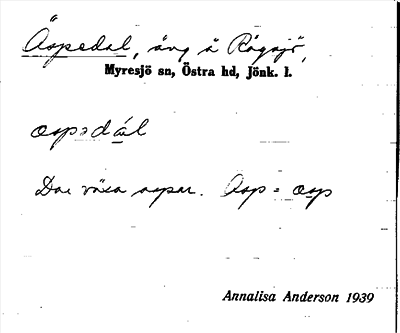 Äspedal, äng å Rågsjö,
Myresjö sn, Östra hd, Jönk. l.
aspədál
Där växa aspar. Asp = asp
Annalisa Anderson 1939